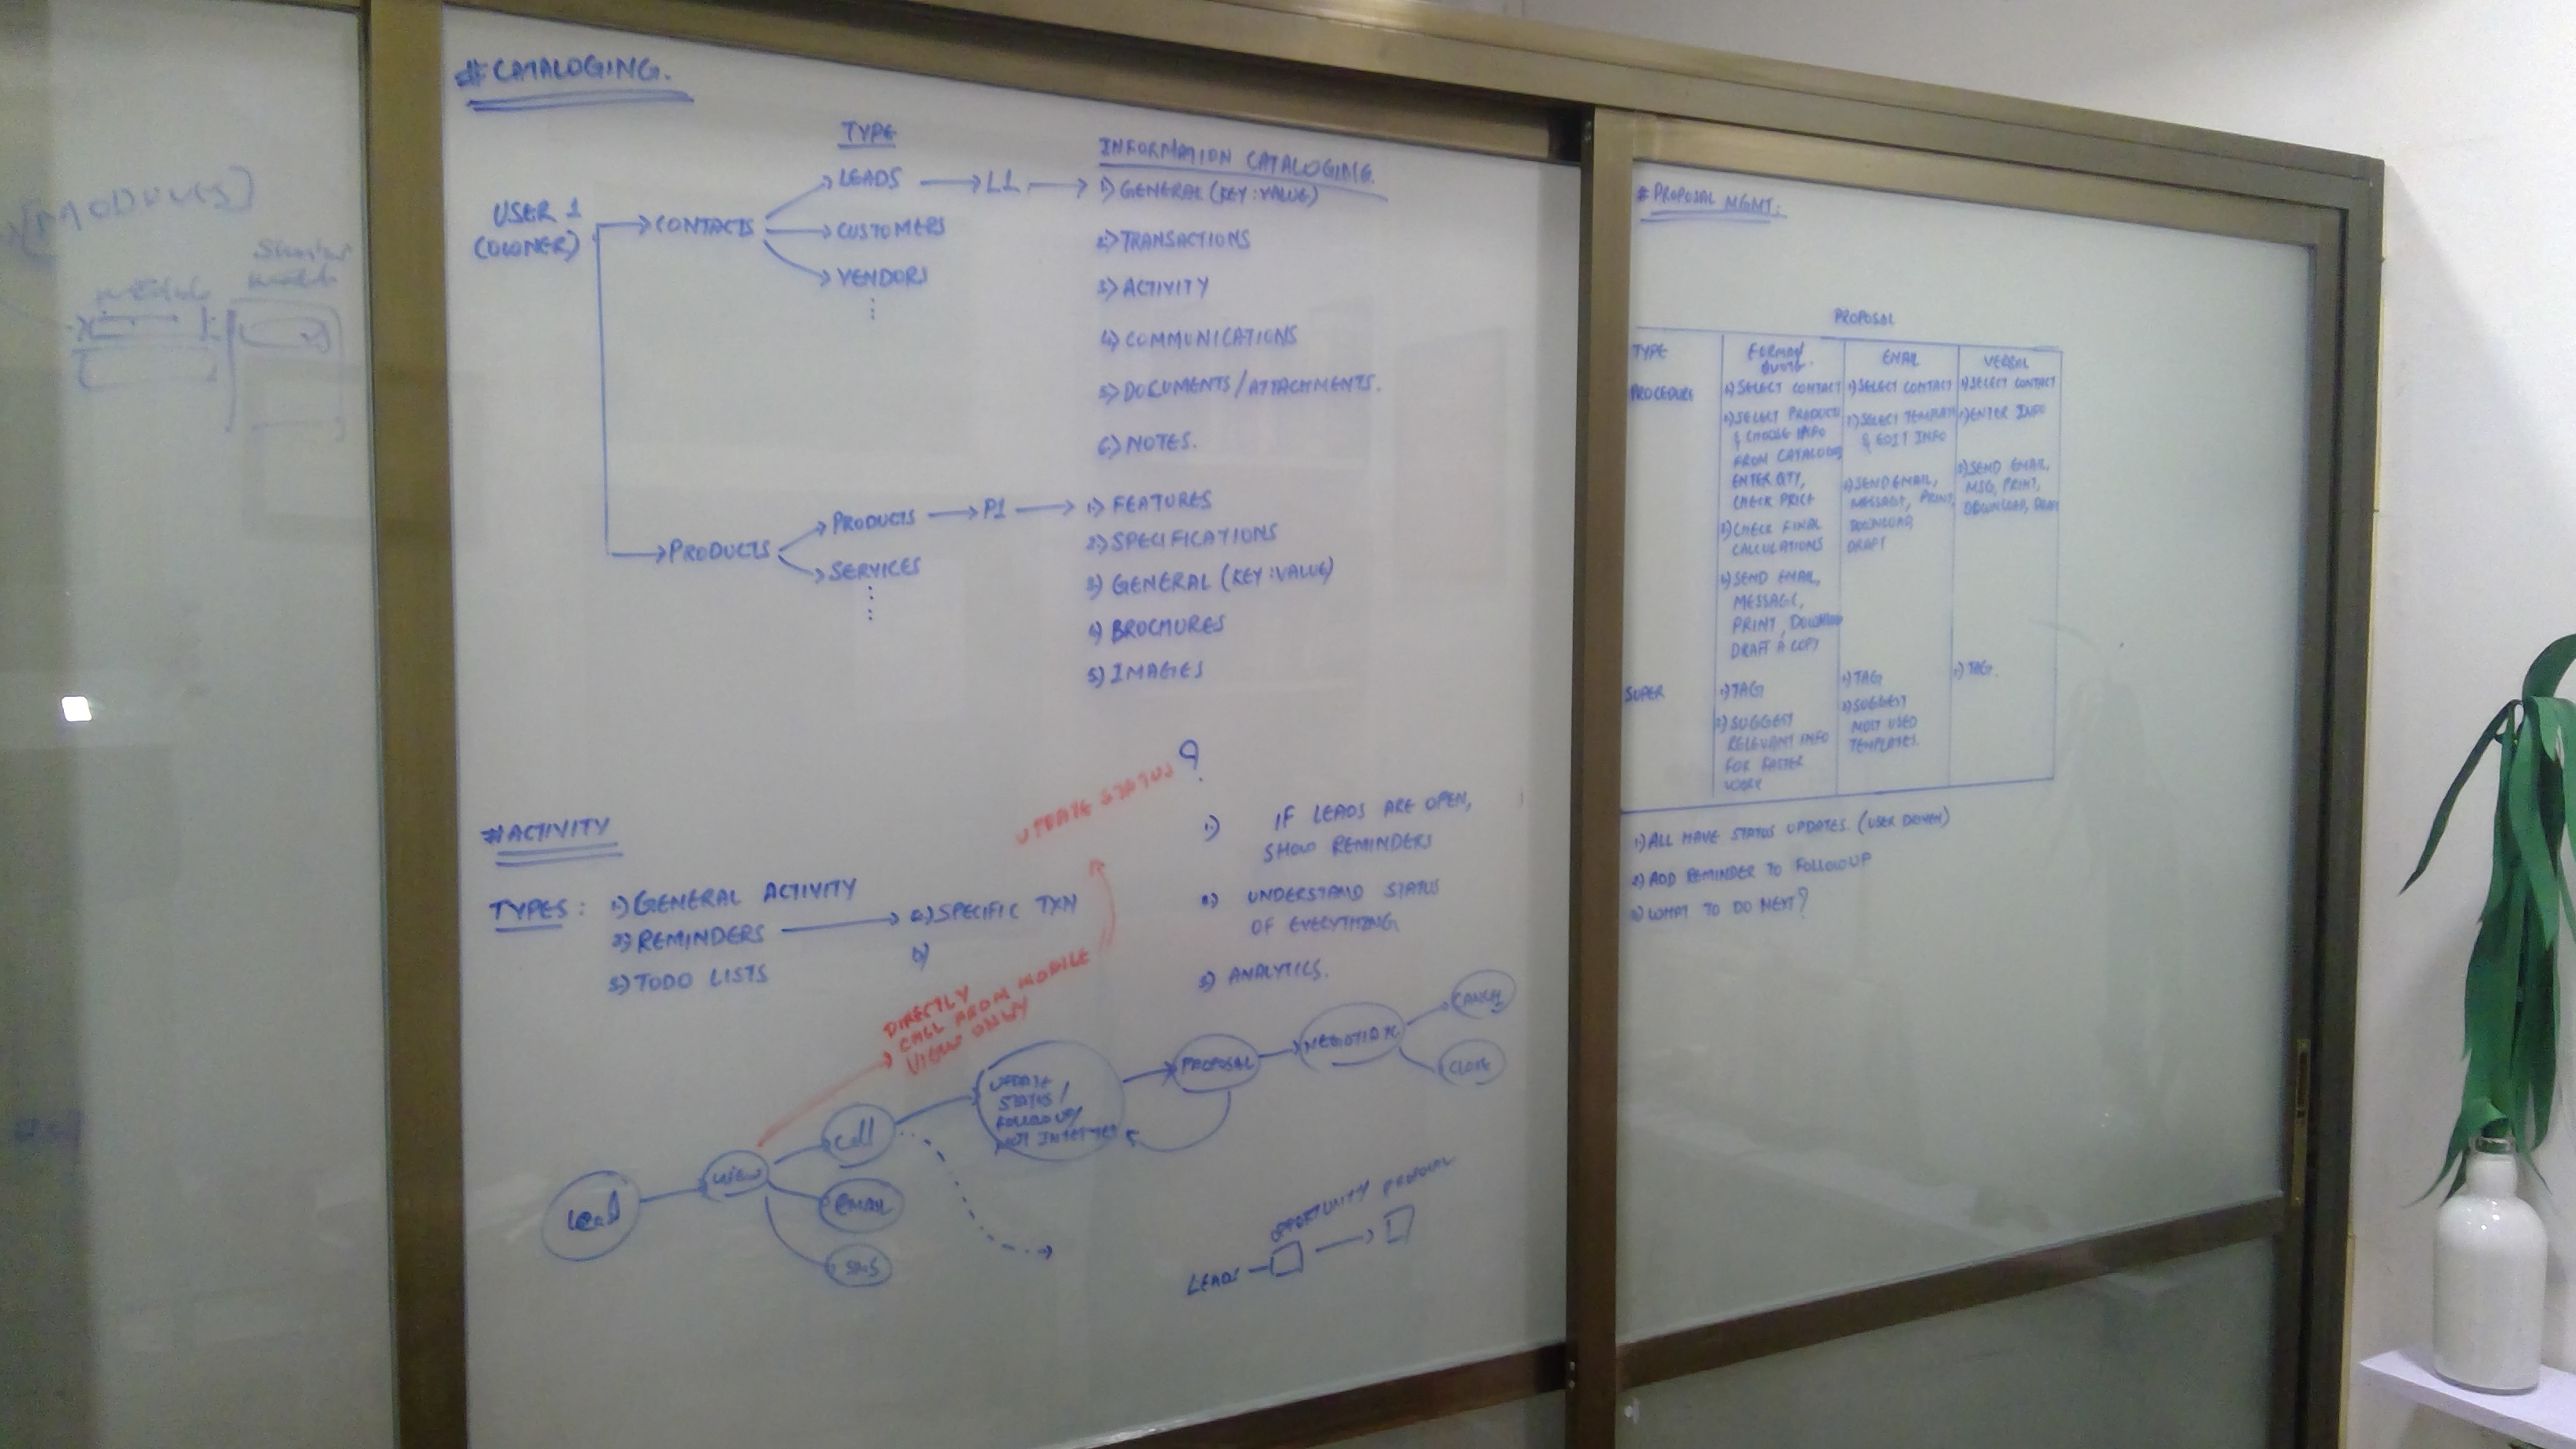 [MODULES]
#CATALOGING.
TYPE
INFORMATION CATALOGING.
USER 1
(OWNER)
CONTACTS
LEADS
L1
1) GENERAL (KEY:VALUE)
CUSTOMERS
2) TRANSACTIONS
VENDORS
3) ACTIVITY
4) COMMUNICATIONS
5) DOCUMENTS/ATTACHMENTS.
6) NOTES.
PRODUCTS
PRODUCTS
P1
1) FEATURES
SERVICES
2) SPECIFICATIONS
3) GENERAL (KEY:VALUE)
4) BROCHURES
5) IMAGES
#ACTIVITY
TYPES:
1) GENERAL ACTIVITY
2) REMINDERS
3) TODO LISTS
a) SPECIFIC TXN
b)
UPDATE STATUS
?
1) IF LEADS ARE OPEN,
SHOW REMINDERS
2) UNDERSTAND STATUS
OF EVERYTHING
3) ANALYTICS.
DIRECTLY
CALL FROM MOBILE
VIEW ONLY
Lead
VIEW
Call
EMAIL
SMS
UPDATE
STATUS/
FOLLOW UP/
NOT
PROPOSAL
CLOSE
LEADS
OPPORTUNITY
PROPOSAL
# PROPOSAL MGMT:
PROPOSAL
TYPE
EMAIL
VERBAL
PROCEDURE
1) SELECT CONTACT
2) SELECT PRODUCT
& CHOOSE INFO
FROM CATALOG
ENTER QTY,
CHECK PRICE
3) CHECK FINAL
CALCULATIONS
4) SEND EMAIL,
MESSAGE,
PRINT, DOWNLOAD
DRAFT A COPY
1) SELECT CONTACT
2) SELECT TEMPLATE
& EDIT INFO
3) SEND EMAIL,
MESSAGE, PRINT,
DOWNLOAD,
DRAFT
1) SELECT CONTACT
2) ENTER INFO
3) SEND EMAIL,
MSG, PRINT,
DOWNLOAD, DRAFT
SUPER
1) TAG
2) SUGGEST
RELEVANT INFO
FOR FASTER
WORK
1) TAG
2) SUGGEST
MOST USED
TEMPLATES.
1) TAG.
1) ALL HAVE STATUS UPDATES. (USER DRIVEN)
2) ADD REMINDER TO FOLLOWUP
3) WHAT TO DO NEXT?